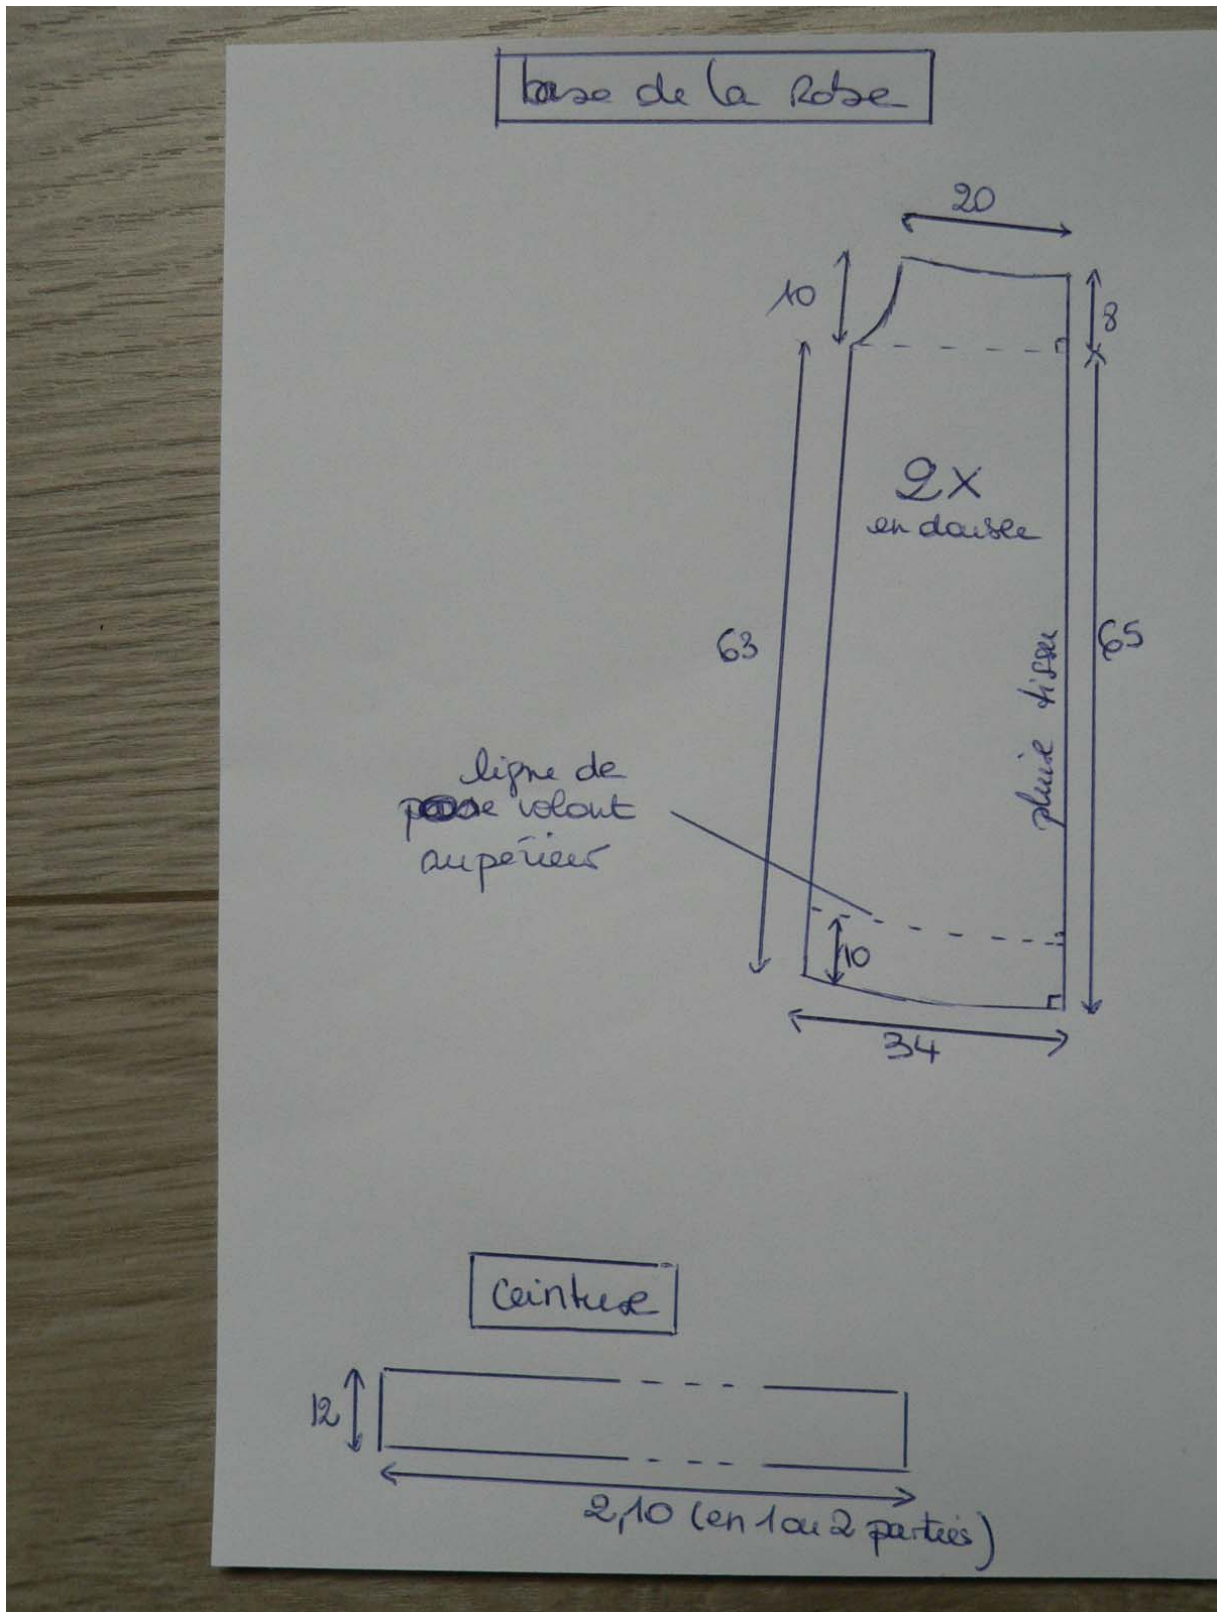 base de la Robe
20
10
8
2X
en double
63
65
pliure tissu
ligne de
pose volant
supérieur
10
34
Ceinture
12
2,10 (en 1 ou 2 parties)